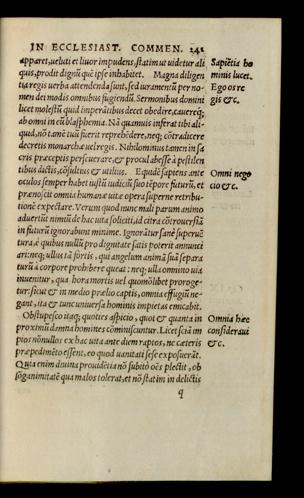 IN ECCLESIAST. COMMEN. 241
apparet, ueluti et liuor impudens, statim ut uidetur ali
quis, prodit dignū quē ipse inhabitet. Magna diligen
tia regis uerba attendenda sunt, sed iuramentū per no-
men dei modis omnibus fugiendū. Sermonibus domini
licet molestū quid imperātibus decet obedire, cauereq́;
ab omni in eū blasphemia. Nā quamuis inferat tibi ali-
quid, nō tamē tuū fuerit reprehēdere, neq; cōtradicere
decretis monarchæ uel regis. Nihilominus tamen in sa
cris præceptis perseuerare, & procul abesse à pestilen
tibus dictis, cōsultius & utilius. Equidē sapiens ante
oculos semper habet iustū iudiciū suo tēpore futurū, et
prænoscit omnia humanæ uitæ opera superne retribu-
tionē expectare. Verum quod nunc mali parum animo
aduertūt nimiū de hac uita soliciti, id citra cōtrouersiā
in futurū ignorabunt minime. Ignorātur sanè superuē
tura, è quibus nullū pro dignitate satis poterit annunci
ari: neq; ullus tā fortis, qui angelum animā suā separa
turū à corpore prohibere queat: neq; ulla omnino uia
inuenitur, qua hora mortis uel quomōlibet proroge-
tur: sicut & in medio prælio captis, omnia effugiū ne-
gant, ita & tunc uniuersa hominis impietas emicabit.
Obstupesco itaq; quoties aspicio, quot & quanta in
proximi damna homines cōminiscuntur. Licet sciā im
pios nōnullos ex hac uita ante diem raptos, ne cæteris
præpedimēto essent, eo quod uanitati sese exposuerāt.
Quia enim diuina prouidētia nō subitò oēs plectit, ob
lōganimitatē qua malos tolerat, et nō statim in delictis
q
Sapiētia ho
minis lucet.
Ego os re
gis &c.
Omni nego
cio &c.
Omnia hæc
consideraui
&c.